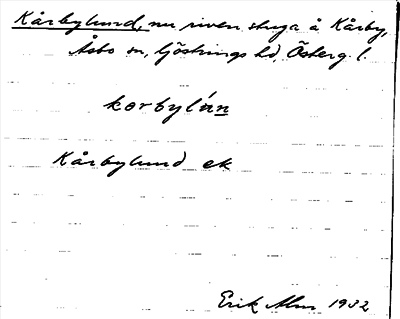 Kårbylund, nu riven stuga å Kårby,
Åsbo sn, Göstrings hd, Österg. l.
korbylún
Kårbylund ek
Erik Alm 1932